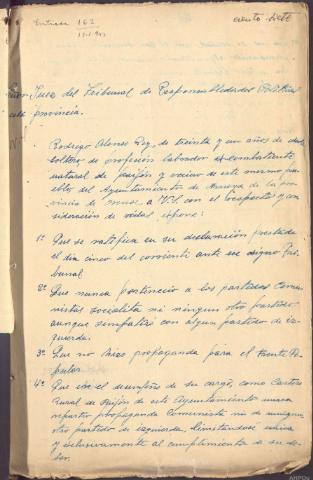 Entrada 162
ciento siete
Juez del Tribunal de Responsabilidades Políticas
esta provincia.
Rodrigo Alonso Rey, de treinta y un años de edad
soltero de profesión labrador excombatiente
natural de Seijón y vecino de este mismo pue-
blo del Ayuntamiento de de la pro-
vincia de a VCI con el respecto y con
sideración de vidas expone:
1º Que se ratifica en su declaración prestada
el día cinco del corriente ante ese digno Tri-
bunal
2º Que nunca perteneció a los partidos Comu-
nistas socialista ni ningun otro partido
aunque simpatizó con algun partido de iz-
quierda.
3º Que no hizo propaganda para el Frente Po-
pular.
4º Que en el desempeño de su cargo, como Cartero
Rural de Seijón de este Ayuntamiento nunca
repartio propaganda Comunista ni de ningun
otro partido de izquierda, limitandose unica
y exclusivamente al cumplimiento de su de-
ber.
AHPOu